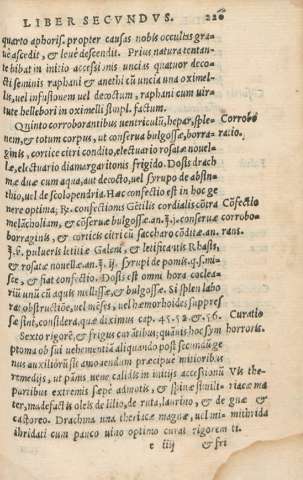 LIBER SECVNDVS. 226
quarto aphoris. propter causas nobis occultas gra-
ue ascedit, & leue descendit. Prius natura tentan-
te bibat in initio accessionis uncias quatuor deco-
cti seminis raphani & anethi cũ uncia una oximel-
lis, uel infusionem uel decoctum, raphani cum uir-
tute hellebori in oximelli simpl. factum.
Quinto corroborantibus uentriculũ, hepar, sple- Corrobo
nem, & totum corpus, ut conserua buglossæ, borra- ratio.
ginis, cortice citri condito, electuario rosatæ nouel-
læ, electuario diamargaritonis frigido. Dosis drach
mæ duæ cum aqua, aut decocto, uel syrupo de absin-
thio, uel de scolopendria. Hac confectio est in hoc ge
nere optima, ℞. confectionis Gẽtilis cordialis cõtra Cõfectio
melãcholiam, & cõseruæ buglossæ an. ʒ.j. conseruæ corrobo-
borraginis, & corticis citri cũ saccharo cõditæ an. rans.
ʒ.ß. pulueris letitiæ Galeni, & letificatis Rhasis,
& rosatæ nouellæ an. ʒ. ij. syrupi de pomis.q.s.mi-
sce, & fiat confectio. Dosis est omni hora coclea-
riũ unũ cũ aquis melissæ, & buglossæ. Si splen labo
rat obstructiõe, uel mẽses, uel hæmorrhoides suppres
sæ sint, considera, quæ diximus cap. 45. 52. & 56. Curatio
Sexto rigorẽ, & frigus curãtibus; quãuis hoc sym horroris.
ptoma ob sui uehementiã aliquando post secũdũ ge
nus auxiliorũ sit amouendum præcipue mitioribus
remedijs, ut pãnis bene calidis in initijs accessionũ Vis the-
partibus extremis sæpe admotis, & spinæ similit- riacæ ma
ter, madefactis oleis de lilio, de ruta, laurino, & de gnæ &
castoreo. Drachma una theriacæ magnæ, uel mi mithrida
thridati cum pauco uino optimo curat rigorem ti.
e iiij & fri